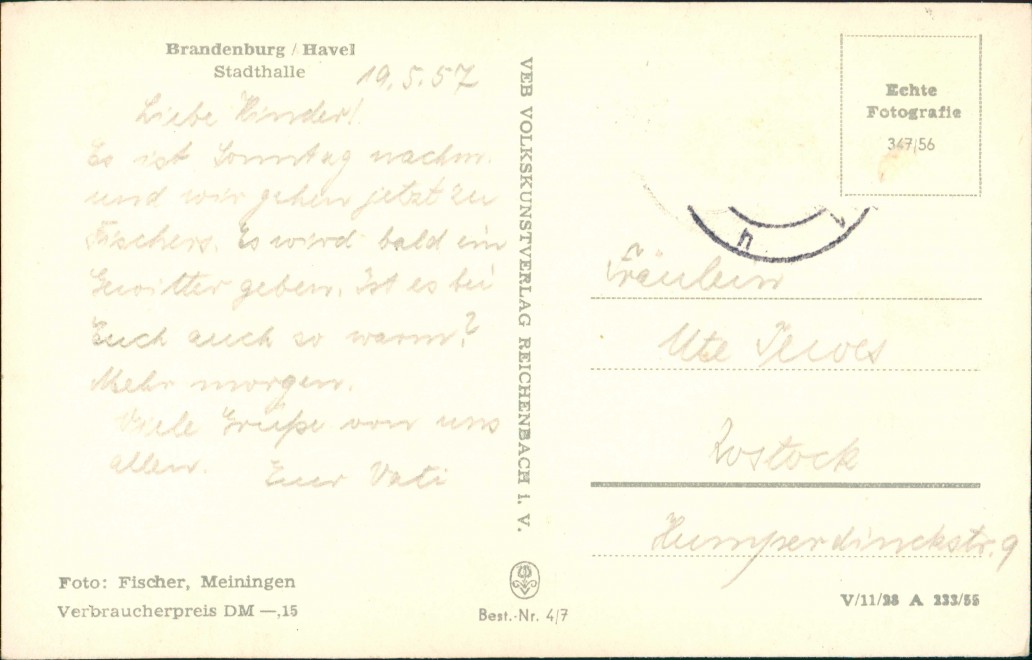 Brandenburg / Havel
Stadthalle
19.5.57
Liebe Kinder!
Es ist Sonntag nachm.
und wir gehen jetzt zu
Fischers. Es wird bald ein
Gewitter geben. Ist es bei
Euch auch so warm?
Mehr morgen.
Viele Grüße von uns
allen.
Euer Vati
Foto: Fischer, Meiningen
Verbraucherpreis DM —,15
VEB VOLKSKUNSTVERLAG REICHENBACH i. V.
Best.-Nr. 4/7
Echte
Fotografie
347/56
Fräulein
Ute Tewes
Rostock
Humperdinckstr. 9
V/11/28 A 233/56